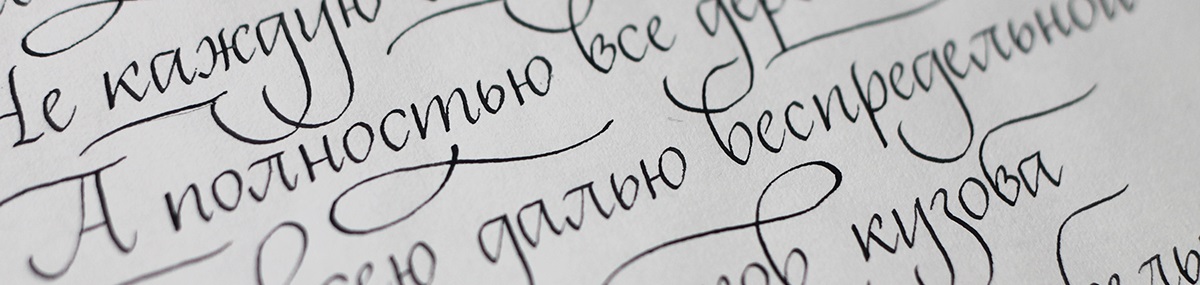 Не каждую
А полностью все дер
всею далью беспредельной
ов кузова
ель